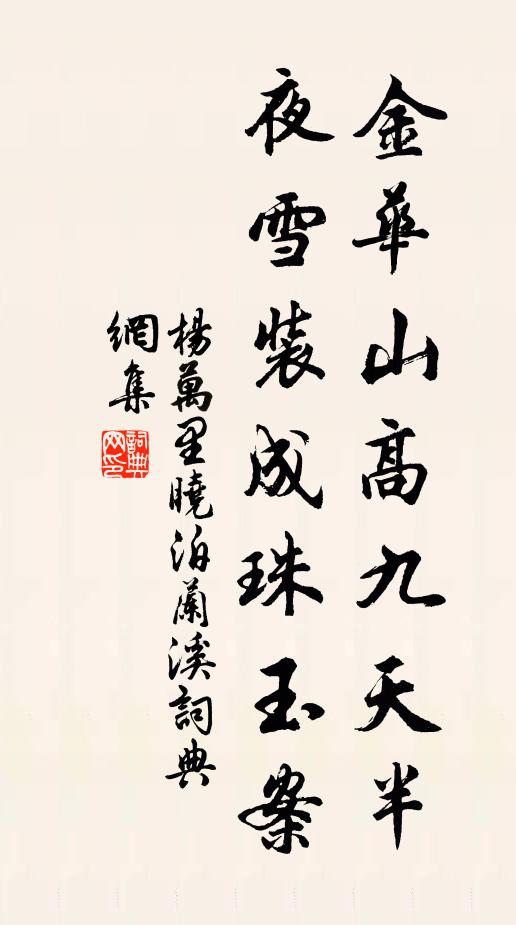 金華山高九天半
夜雪裝成珠玉案
楊萬里曉泊蘭溪詞典
網集
詞典
网印